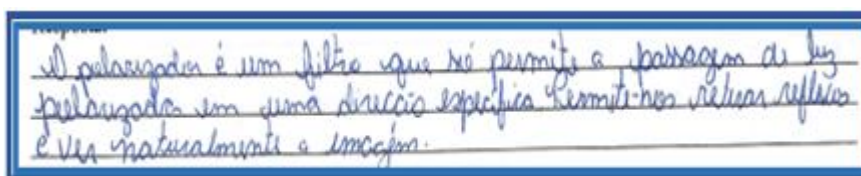 Resposta:
O polarizador é um filtro que só permite a passagem de luz
polarizada em uma direcção específica. Permite-nos retirar reflexos
e ver naturalmente a imagem.